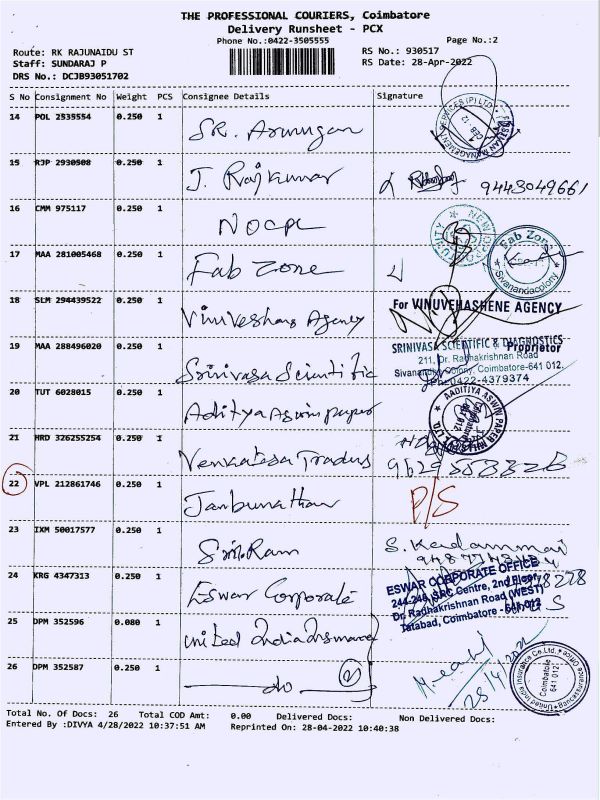 THE PROFESSIONAL COURIERS, Coimbatore
Delivery Runsheet - PCX
Phone No.:0422-3505555
Page No.:2
Route: RK RAJUNAIDU ST
RS No.: 930517
Staff: SUNDARAJ P
RS Date: 28-Apr-2022
DRS No.: DCJB93051702
S No Consignment No Weight PCS Consignee Details Signature
14 POL 2535554 0.250 1 SR. Arumugan
15 RJP 2930508 0.250 1 J. Rajkumar 9443049661
16 CMM 975117 0.250 1 NOCPL
17 MAA 281005468 0.250 1 Fab Zone
Fab Zone
Sivanandacolony
18 SLM 294439522 0.250 1 Vinuveshans Agency
For VINUVEHASHENE AGENCY
Proprietor
19 MAA 288496020 0.250 1 Srinivasa Scientific
SRINIVASA SCIENTIFIC & DIAGNOSTICS
211, Dr. Radhakrishnan Road
Sivananda Colony, Coimbatore-641 012.
Ph: 0422-4379374
20 TUT 6028015 0.250 1 Aditya Aswin paper
AADITIYA ASWIN PAPER MILLS
21 HRD 326255254 0.250 1 Venkatesa Traders
22 VPL 212861746 0.250 1 Janbunathan P/S
23 IXM 50017577 0.250 1 Sri Ram S. Kadammai
24 KRG 4347313 0.250 1 Eswar Corporate
ESWAR CORPORATE OFFICE
244-246, SRC Centre, 2nd Floor,
Dr. Radhakrishnan Road (WEST)
Tatabad, Coimbatore - 641 012
25 DPM 352596 0.080 1 United India Insurance
26 DPM 352587 0.250 1 do (2)
United India Insurance Co.Ltd.
Coimbatore
641 012
Total No. Of Docs: 26 Total COD Amt: 0.00 Delivered Docs: Non Delivered Docs:
Entered By :DIVYA 4/28/2022 10:37:51 AM Reprinted On: 28-04-2022 10:40:38